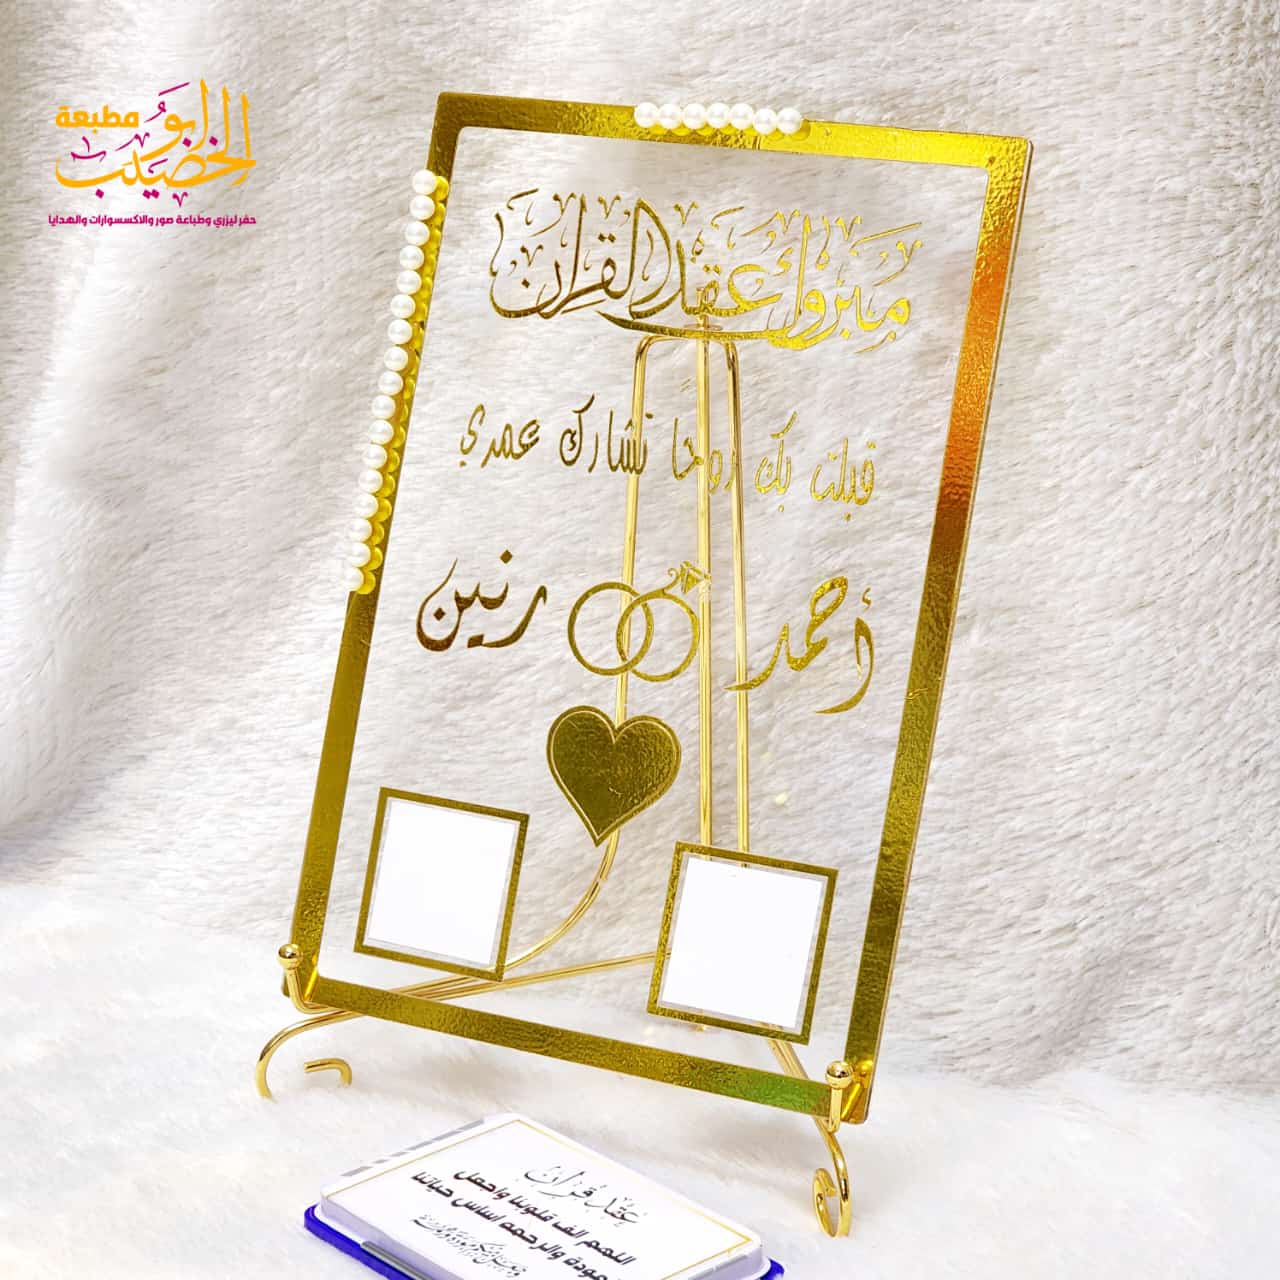 مطبعة
ابو الخصيب
حفر ليزري وطباعة صور والاكسسوارات والهدايا
مبروك عقد القران
قبلت بك زوجا نشارك عمري
أحمد رنين
عقد قران
اللهم الف قلوبنا واجعل
المودة والرحمه اساس حياتنا